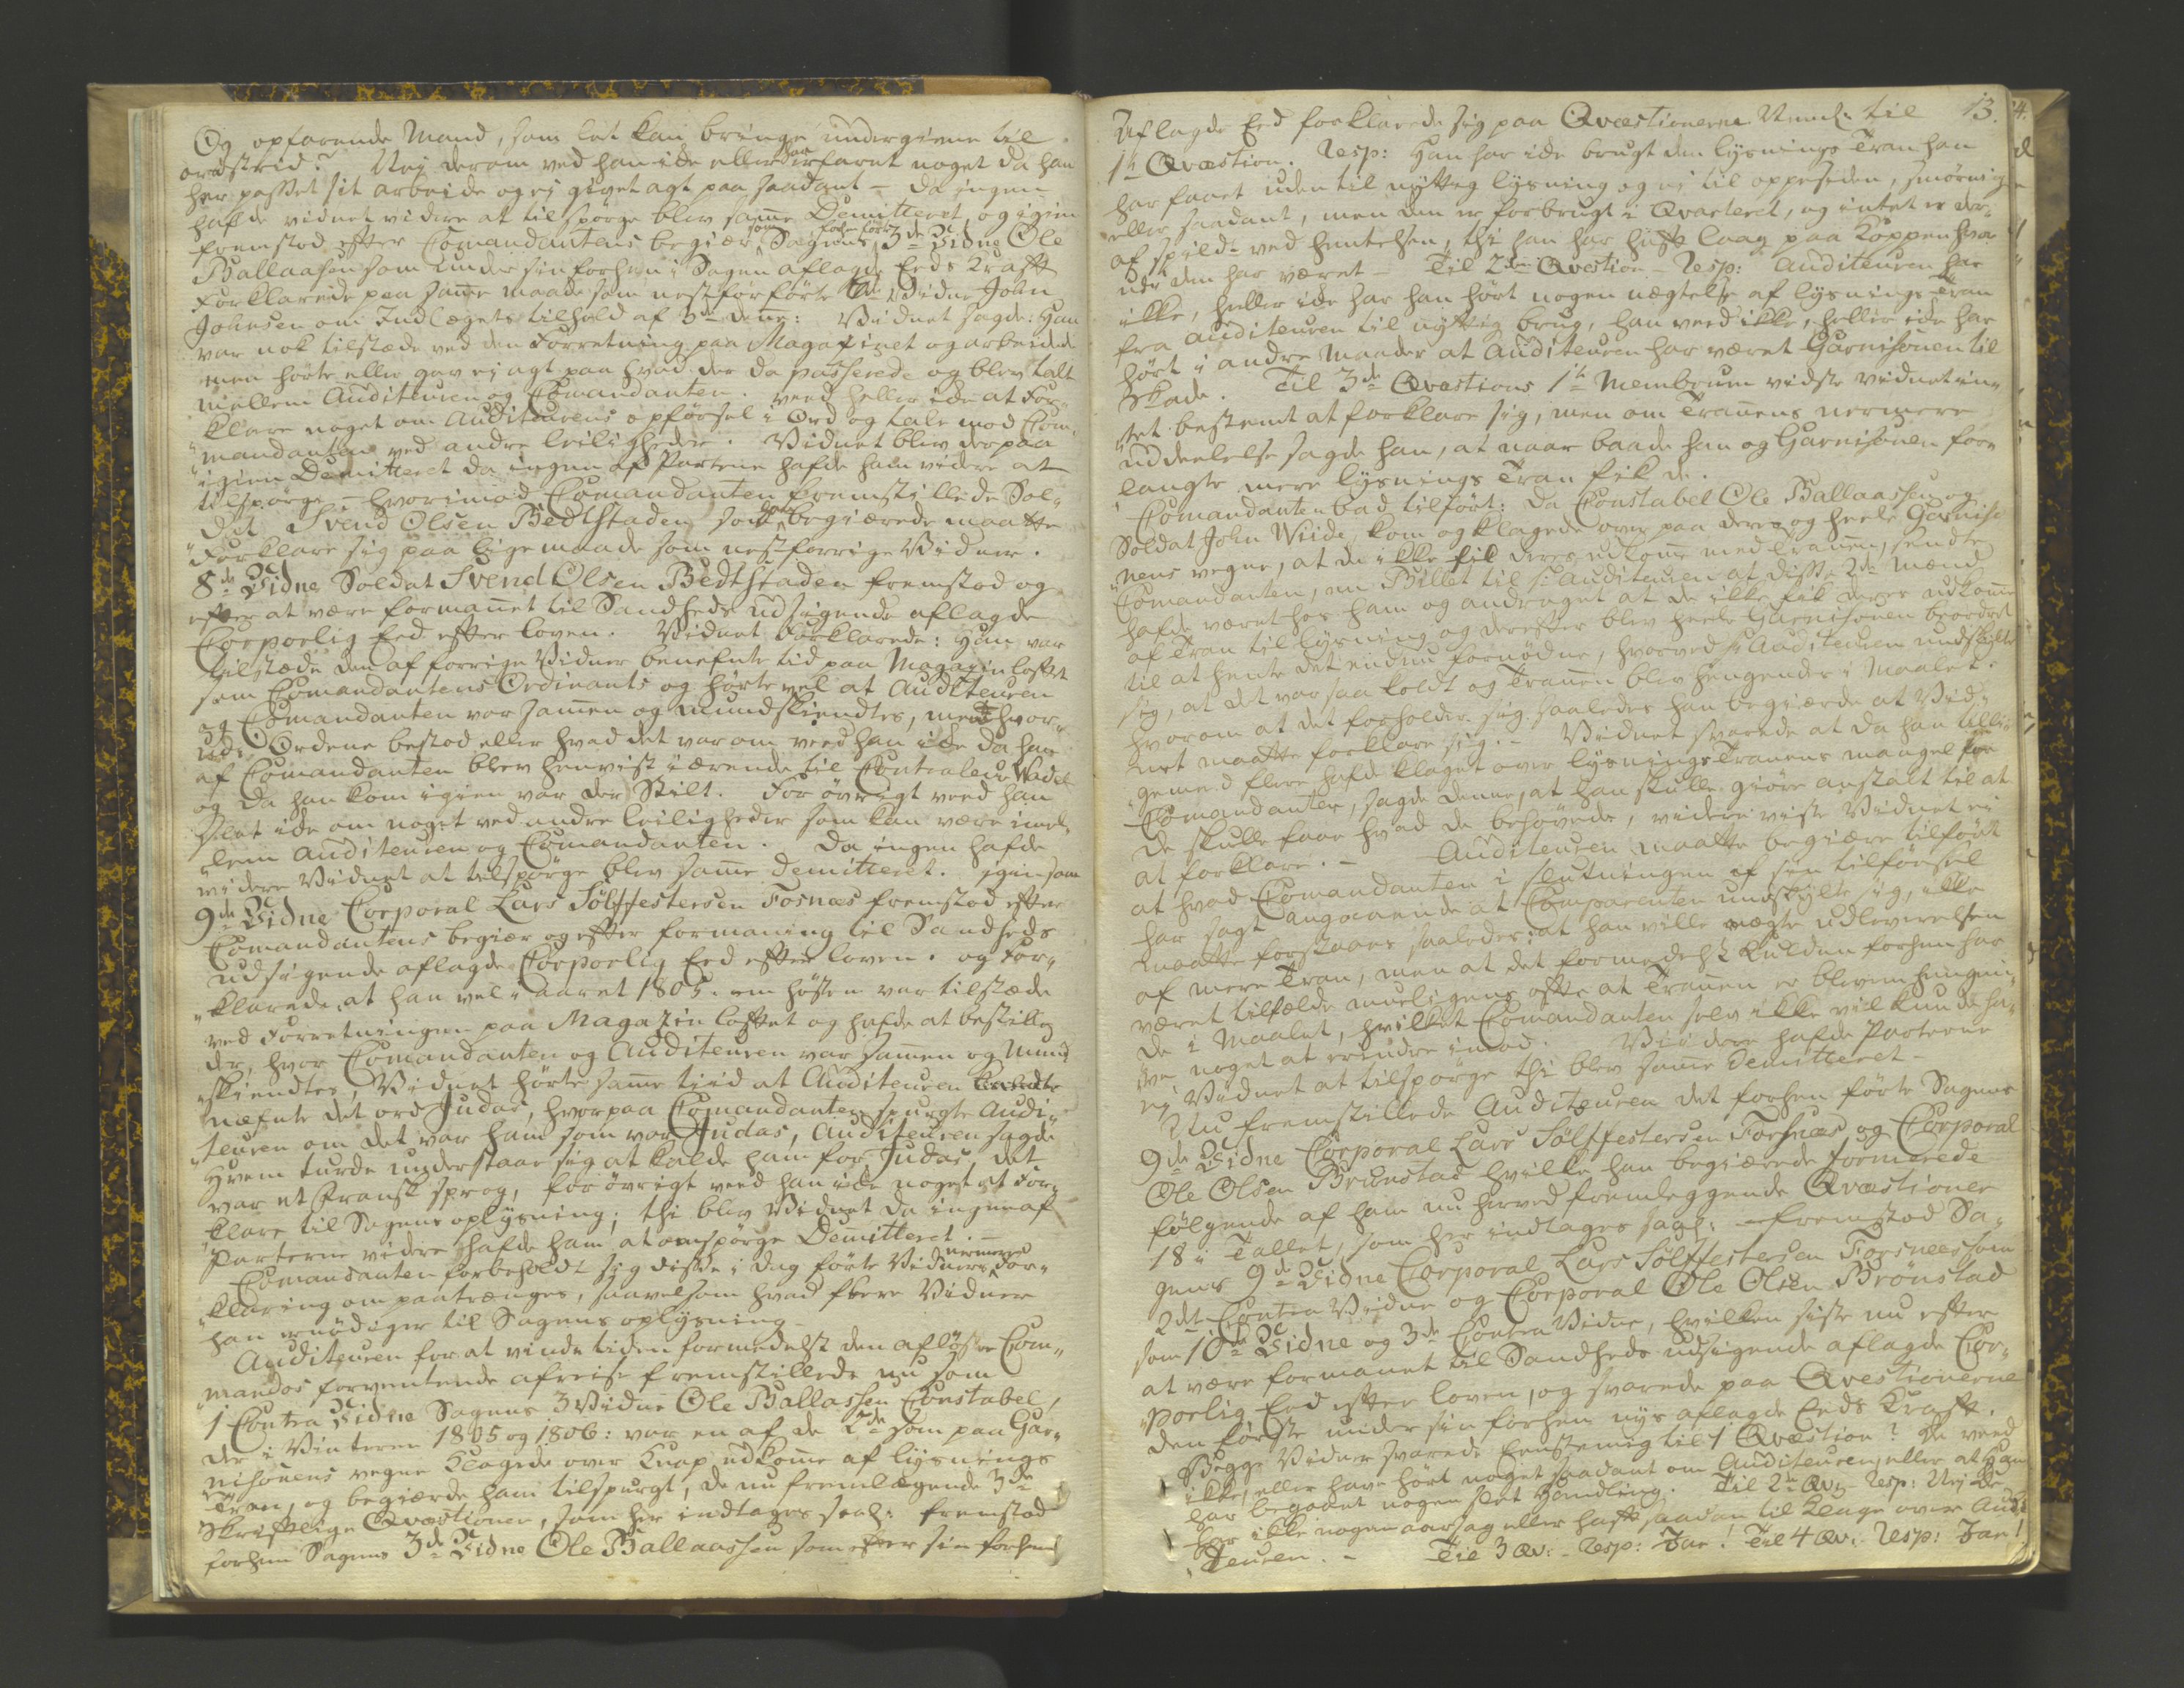 Og opfarende Mand, som let kan bringe undergivne til
ordstrid? Nej derom ved han ide eller har erfaret noget da han
har passet sit arbeide og ej givet agt paa saadant – da ingen
hafde vidnet videre at tilspørge blev samme Demitteret, og igien
fremstod efter Comandantens begiær som Sagens forhen førte 3de Vidne Ole
Ballaasen som under sin forhen i Sagen aflagde Eeds Kraft
Forklarede paa samme maade som nestforførte Vidne John
Johnsen om Indlægets tilhold af 3de denne: Vidnet sagde: Han
var nok tilstæde ved den Forretning paa Magasinet og arbeidede
men hørte eller gav ej agt paa hvad der da passerede og blev talt
mellem Auditeuren og Comandanten. veed heller ide at For„
„klare noget om Auditeurens opførsel i Ord og tale mod Com„
„mandanten ved andre leiligheder. Vidnet blev derpaa
igien Demitteret da ingen af Parterne hafde ham videre at
tilspørge – hvorimod Comandanten fremstillede Sol„
dat Svend Olsen Bedtstaden som begiærede maatte
Forklare sig paa lige maade som nestforrige Vidner.
8de Vidne Soldat Svend Olsen Bedtstaden fremstod og
efter at være formanet til Sandheds udsigende aflagde
Corporlig Eed efter loven. Vidnet Forklarede: Han var
tilstæde den af forrige Vidner benefnte tid paa Magazin loftet
som Comandantens Ordinants og hørte vel at Auditeuren
og Comandanten var sammen og mundskiendtes, men hvor„
udi Ordene bestod eller hvad det var om veed han ide da han
af Comandanten blev henvist i ærende til Controleur Wadel
og da han kom igien var der Stilt. For øvrigt veed han
slet ide om noget ved andre leiligheder som kan være imel„
„lem Auditeuren og Comandanten. Da ingen hafde
videre Vidnet at tilspørge blev samme demitteret. igien som
9de Vidne Corporal Lars Sölffestersen Fosnæs fremstod efter
Comandantens begiær og efter formaning til Sandheds
udsigende aflagde Corporlig Eed efter loven. og For„
„klarede, at han vel i aaret 1805. om høsten var tilstæde
ved Forretningen paa Magazin loftet og hafde at bestille
der, hvor Comandanten og Auditeuren var sammen og Mund
„skiendtes, Vidnet hørte samme tiid at Auditeuren
næfnte det ord Judas, hvorpaa Comandanten spurgte Audi„
„teuren om det var ham som var Judas, Auditeuren sagde
Hvem turde understaar sig at kalde ham for Judas, det
var et Fransk sprog, for øvrigt veed han ide noget at For„
„klare til Sagens oplysning; thi blev Vidnet da ingen af
Parterne videre hafde ham at omspørge Demitteret. –
Comandanten forbeholdt sig disse i dag førte Vidners nermere For„
„klaring om paatrænges, saavelsom hvad flere Vidner
han nødiger til Sagens oplysning –
Auditeuren for at vinde tiden formedelst den afløste Com„
„mandos forventende afreise fremstillede nu som
1 Contra Vidne Sagens 3 Vidne Ole Ballassen Constabel,
der i Vinteren 1805 og 1806: var en af de 2de som paa Gar„
nisonens vegne Klagede over Knap udkomme af lysnings
Tran, og begiærde ham tilspurgt, de nu fremlægende 3de
Skriftlige Qvæstioner, som her indtages saal: fremstod
forhen Sagens 3de Vidne Ole Ballaassen som efter sin forhen
13.
Aflagde Eed forklarede sig paa Qvæstionerne Neml: til
1te Qvæstion. Resp: Han har ide brugt den lysnings Tran han
har faaet uden til nyttig lysning og ej til oppesiden, smørning
eller saadant, men den er forbrugt i Qvarteret, og intet er der„
af spildt ved hentelsen, thi han har haft laag paa Koppen hvor„
udi den har været – Til 2den Qvæstion – Resp: Auditeuren har
ikke, heller ide har han hørt nogen nægtelse af lysnings Tran
fra Auditeuren til nyttig brug, han veed ikke, heller ide har
hørt i andre Maader at Auditeuren har været Garnisonen til
Skade. Til 3de Qvæstions 1te Membrum vidste vidnet in„
„tet bestemt at forklare sig, men om Trannens nermere
uddeelelse sagde han, at naar baade han og Garnisonen for„
langte mere lysnings Tran fik de.
Comandanten bad tilført: da Constabel Ole Ballaassen og
Soldat John Wiide kom og klagede over paa deres og heele Garniso
„nens vegne, at de ikke fik deres udkomme med Trannen, sendte
Comandanten, en Billet til Hr Auditeuren at disse 2de Mænd
hafde været hos ham og andraget at de ikke fik deres udkomme
af Tran til lysning og derefter blev heele Garnisonen beordret
til at hente det endnu fornødne, hvorved Hr Auditeuren undskylte
sig, at det var saa koldt og Trannen blev hengende i Maalet.
hvorom at det forholder sig saaledes han begiærde at Vid„
net maatte forklare sig. – Vidnet svarede at da han tilli„
„gemed flere hafde klaget over lysnings Trannens mangel for
Comandanten, sagde denne, at han skulle giøre anstalt til at
de skulle faae hvad de behøvede, videre viste Vidnet ei
at forklare. – Auditeuren maatte begiære tilført
at hvad Comandanten i slutningen af sin tilførsel
har sagt angaaende at Comparenten undskylte sig, ikke
maatte forstaaes saaledes: at han ville nægte udleverelsen
af mere Tran, men at det formedelst Kulden forhen har
været tilfælde mueligens ofte at Trannen er bleven hengen„
de i Maalet, hvilket Comandanten selv ikke vil kunde ha„
„ve noget at erindre imod. Viidere hafde Parterne
ej Vidnet at tilspørge thi blev samme demitteret –
Nu fremstillede Auditeuren det forhen førte Sagens
9de Vidne Corporal Lars Sölffestersen Forsnæs og Corporal
Ole Olsen Brunstad hvilke han begiærede formerede
følgende af ham nu herved fremleggende Qvæstioner
18 i Tallet, som her indtages saal: – fremstod Sa„
gens 9de Vidne Corporal Lars Sölffestersen Forsnees som
2det Contra Vidne og Corporal Ole Olsen Brönstad
som 10de Vidne og 3de Contra Vidne, hvilken siste nu efter
at være formanet til Sandheds udsigende aflagde Cor„
„porlig Eed efter loven, og svarede paa Qvestionerne
den første under sin forhen nys aflagde Eeds Kraft.
Begge Vidner svarede Eenstemig til 1 Qvæstion? De veed
ikke, eller have hørt noget saadant om Auditeuren, eller at Han
har begaaet nogen slet Handling. Til 2de Qv: – Resp: Nej de
har ikke nogen aarsag eller haft saadan til Klage over Audi„
„teuren. – Til 3 Qv: – Resp: Jae! Til 4 Qv: – Resp: Jae!